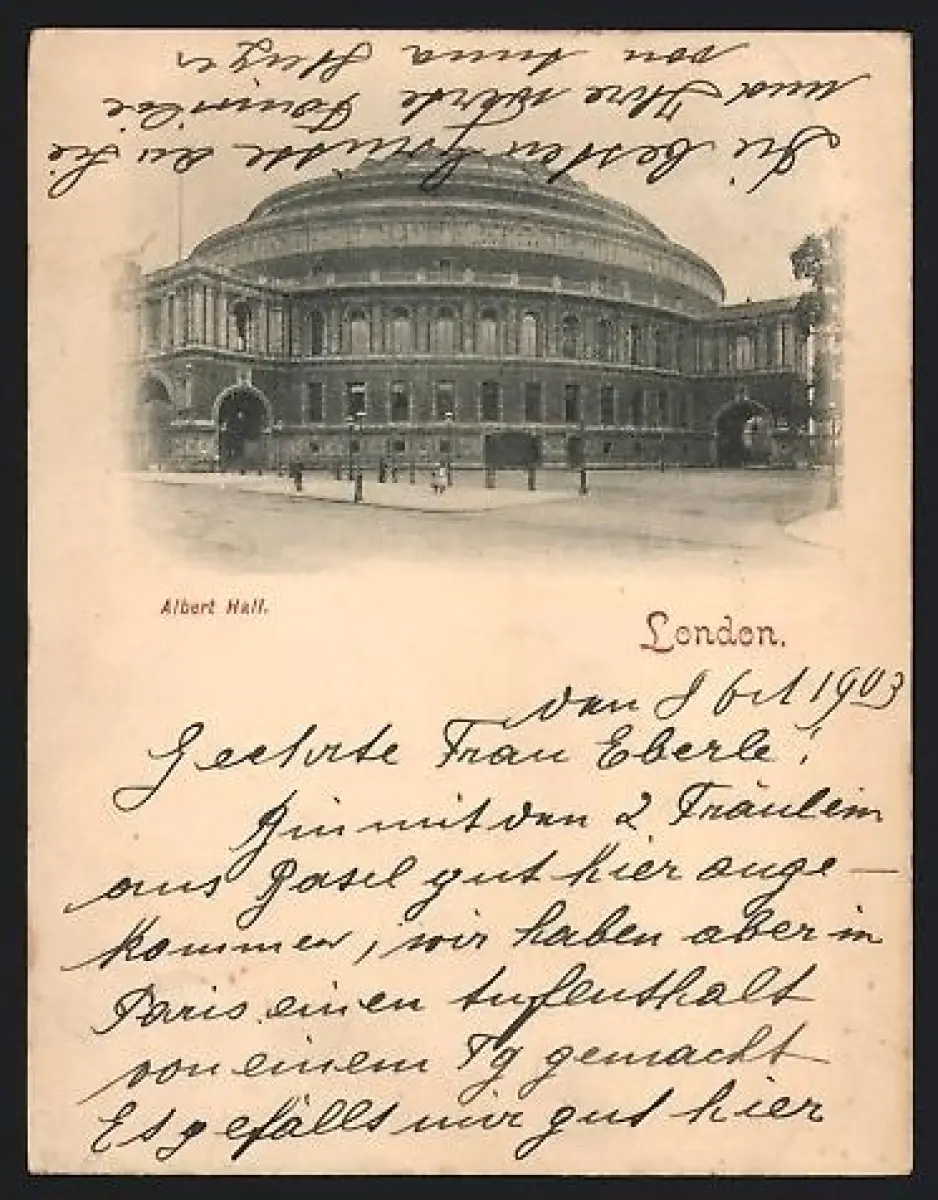 Albert Hall.
London.
den 8 Oct 1903
Geehrte Frau Eberle!
Bin mit den 2 Fräulein
aus Basel gut hier ange-
kommen, wir haben aber in
Paris einen Aufenthalt
von einem Tg gemacht
Es gefällt mir gut hier
Die besten Grüsse an Sie
und Ihre werte Familie
von Anna